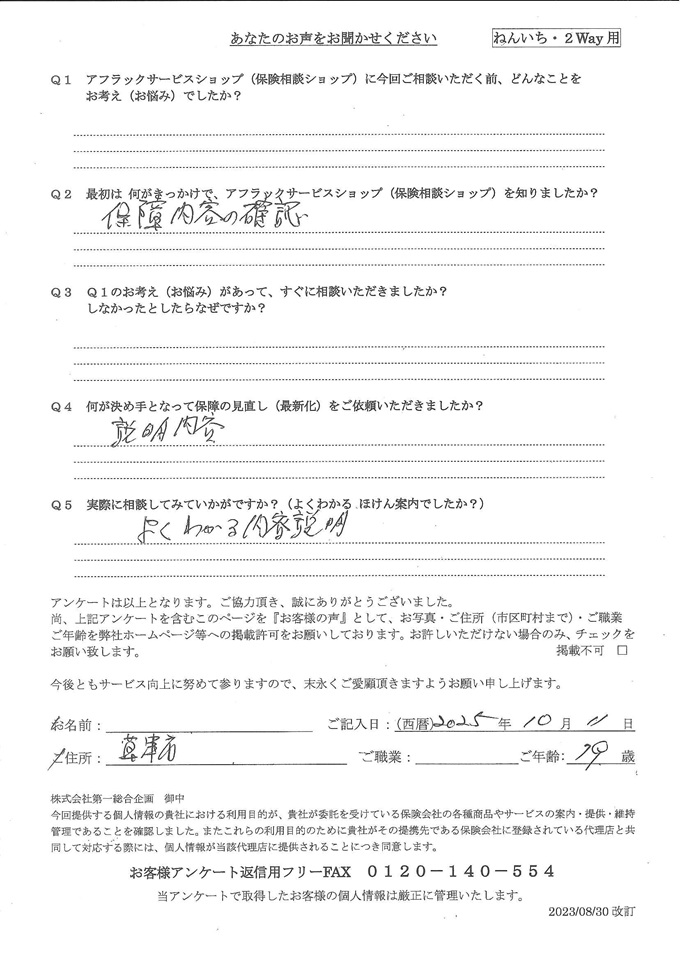 あなたのお声をお聞かせください
ねんいち・２Way用
Ｑ１ アフラックサービスショップ（保険相談ショップ）に今回ご相談いただく前、どんなことを
お考え（お悩み）でしたか？
Ｑ２ 最初は 何がきっかけで、アフラックサービスショップ（保険相談ショップ）を知りましたか？
保障内容の確認
Ｑ３ Ｑ１のお考え（お悩み）があって、すぐに相談いただきましたか？
しなかったとしたらなぜですか？
Ｑ４ 何が決め手となって保障の見直し（最新化）をご依頼いただきましたか？
説明内容
Ｑ５ 実際に相談してみていかがですか？（よくわかる ほけん案内でしたか？）
よくわかる内容説明
アンケートは以上となります。ご協力頂き、誠にありがとうございました。
尚、上記アンケートを含むこのページを『お客様の声』として、お写真・ご住所（市区町村まで）・ご職業
ご年齢を弊社ホームページ等への掲載許可をお願いしております。お許しいただけない場合のみ、チェックを
お願い致します。 掲載不可 □
今後ともサービス向上に努めて参りますので、末永くご愛顧頂きますようお願い申し上げます。
お名前： ご記入日：（西暦）2025年 10月 11日
ご住所： 草津市 ご職業： ご年齢： 79 歳
株式会社第一総合企画 御中
今回提供する個人情報の貴社における利用目的が、貴社が委託を受けている保険会社の各種商品やサービスの案内・提供・維持
管理であることを確認しました。またこれらの利用目的のために貴社がその提携先である保険会社に登録されている代理店と共
同して対応する際には、個人情報が当該代理店に提供されることにつき同意します。
お客様アンケート返信用フリーFAX ０１２０－１４０－５５４
当アンケートで取得したお客様の個人情報は厳正に管理いたします。
2023/08/30 改訂